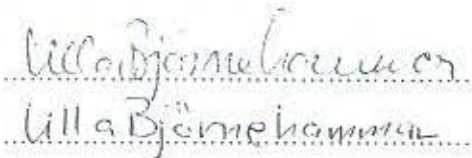 Ulla Björnehammer
Ulla Björnehammar